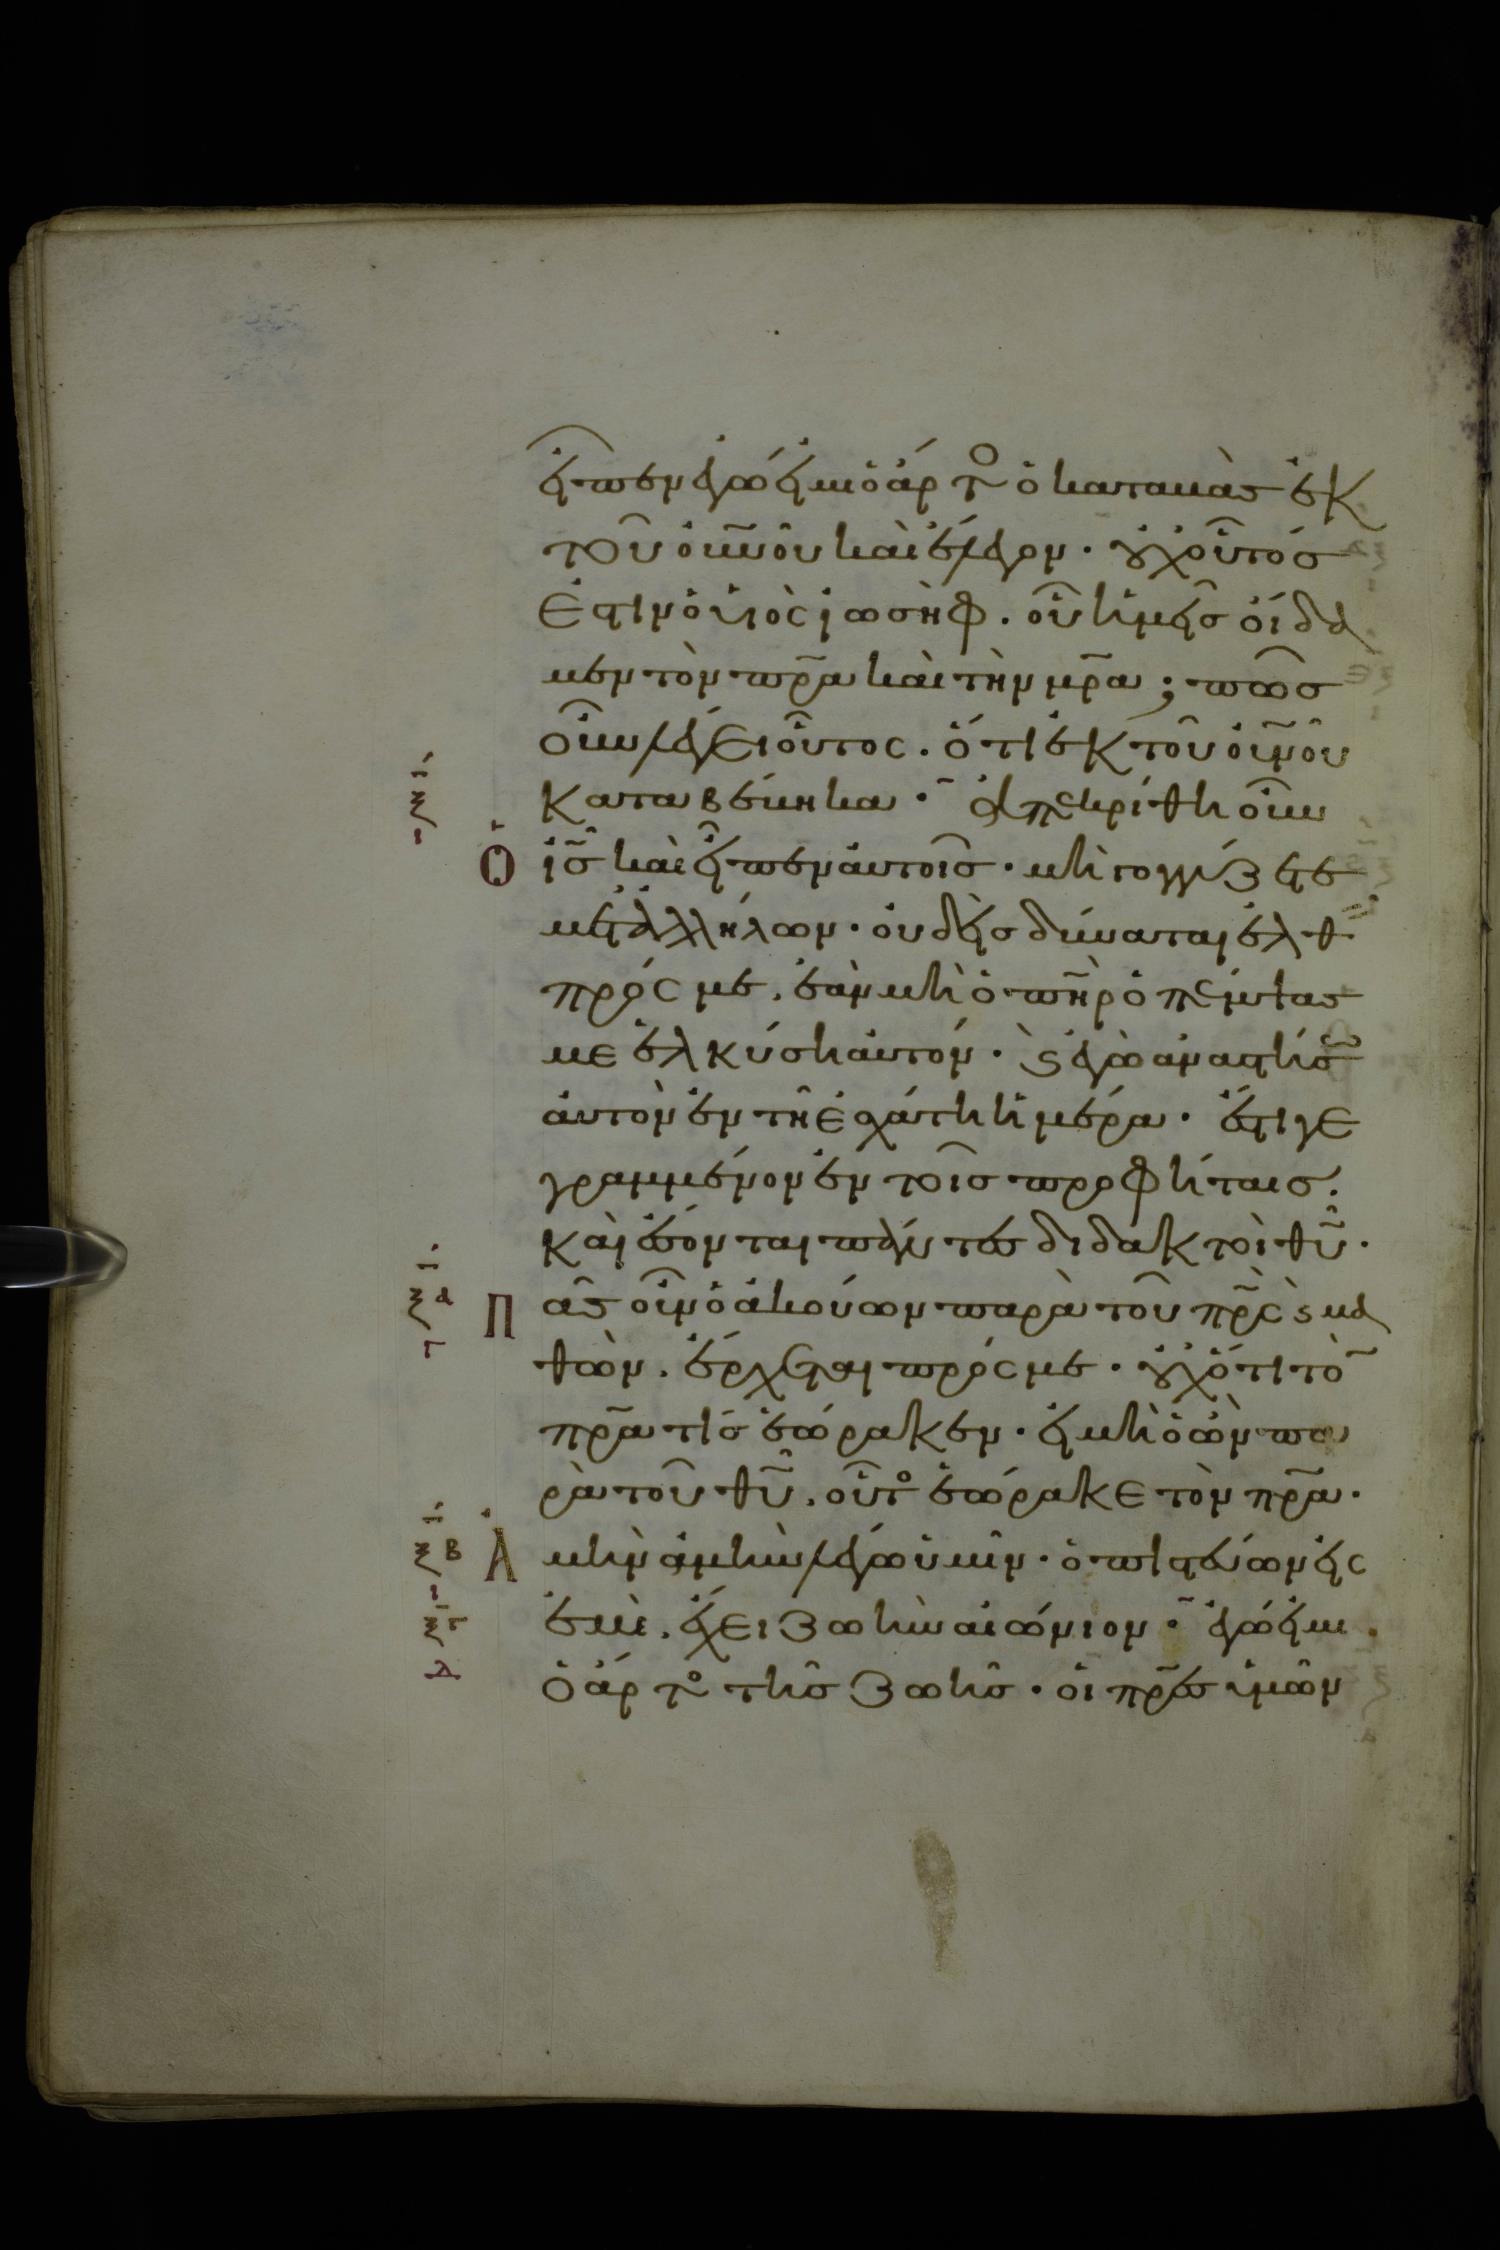 εἶπεν ἐγώ εἰμι ὁ ἄρτος ὁ καταβὰς ἐκ
τοῦ οὐνοῦ καὶ ἔλεγον · οὐχ οὗτός
ἐστιν ὁ υἱὸς ἰωσὴφ · οὗ ἡμεῖς οἴδα
μεν τὸν πρα καὶ τὴν μρα ; πῶς
οὖν λέγει οὗτος · ὅτι ἐκ τοῦ οὐνοῦ
καταβέβηκα · ἀπεκρίθη οὖν
ὁ ις καὶ εἶπεν αὐτοῖς · μὴ γογγύζετε
μετ ἀλλήλων · οὐδεὶς δύναται ἐλθ
πρός με · ἐὰν μὴ ὁ πηρ ὁ πέμψας
με ἑλκύση αὐτόν · ϛ ἐγὼ ἀναστήσω
αὐτὸν ἐν τῆ ἐσχάτη ἡμέρα · ἔστι γε
γραμμένον ἐν τοῖς προφήταις ·
καὶ ἔσονται πάντες διδακτοὶ θυ ·
Πᾶς οὖν ὁ ἀκούων παρὰ τοῦ πρς ϛ μα
θὼν · ἔρχεται πρός με · οὐχ ὅτι τὸ
πρα τίς ἑώρακεν · εἰ μὴ ὁ ὢν πα
ρὰ τοῦ θυ · οὗτος ἑώρακε τὸν πρα ·
Ἀμὴν ἀμὴν λέγω ὑμῖν · ὁ πιστεύων εἰς
ἐμὲ · ἔχει ζωὴν αἰώνιον · ἐγώ εἰμι
ὁ ἄρτος τῆς ζωῆς · οἱ πρες ὑμῶν